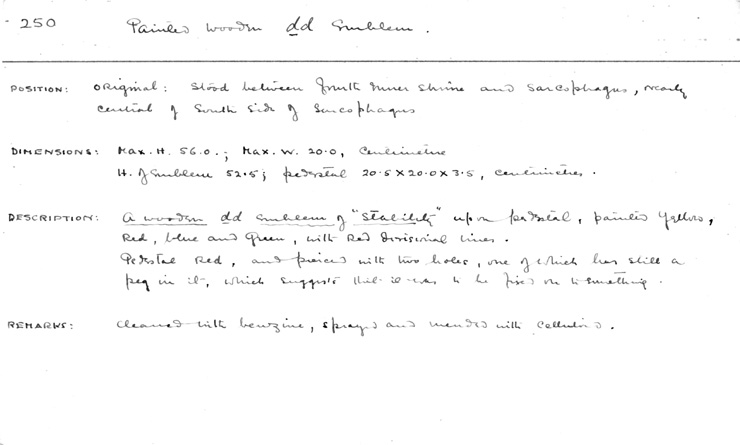 250 Painted wooden dd Emblem.
POSITION: ORIGINAL: Stood between fourth inner shrine and sarcophagus, nearly
central of South side of Sarcophagus
DIMENSIONS: Max. H. 56.0.; Max. W. 20.0, Centimetre
H. of Emblem 52.5; pedestal 20.5 x 20.0 x 3.5, centimetres.
DESCRIPTION: A wooden dd emblem of "Stability" upon pedestal, painted yellow,
Red, blue and Green, with Red divisional lines.
Pedestal Red, and pierced with two holes, one of which has still a
peg in it, which suggests that it was to be fixed on to something.
REMARKS: Cleaned with benzine, sprayed and mended with Celluloid.